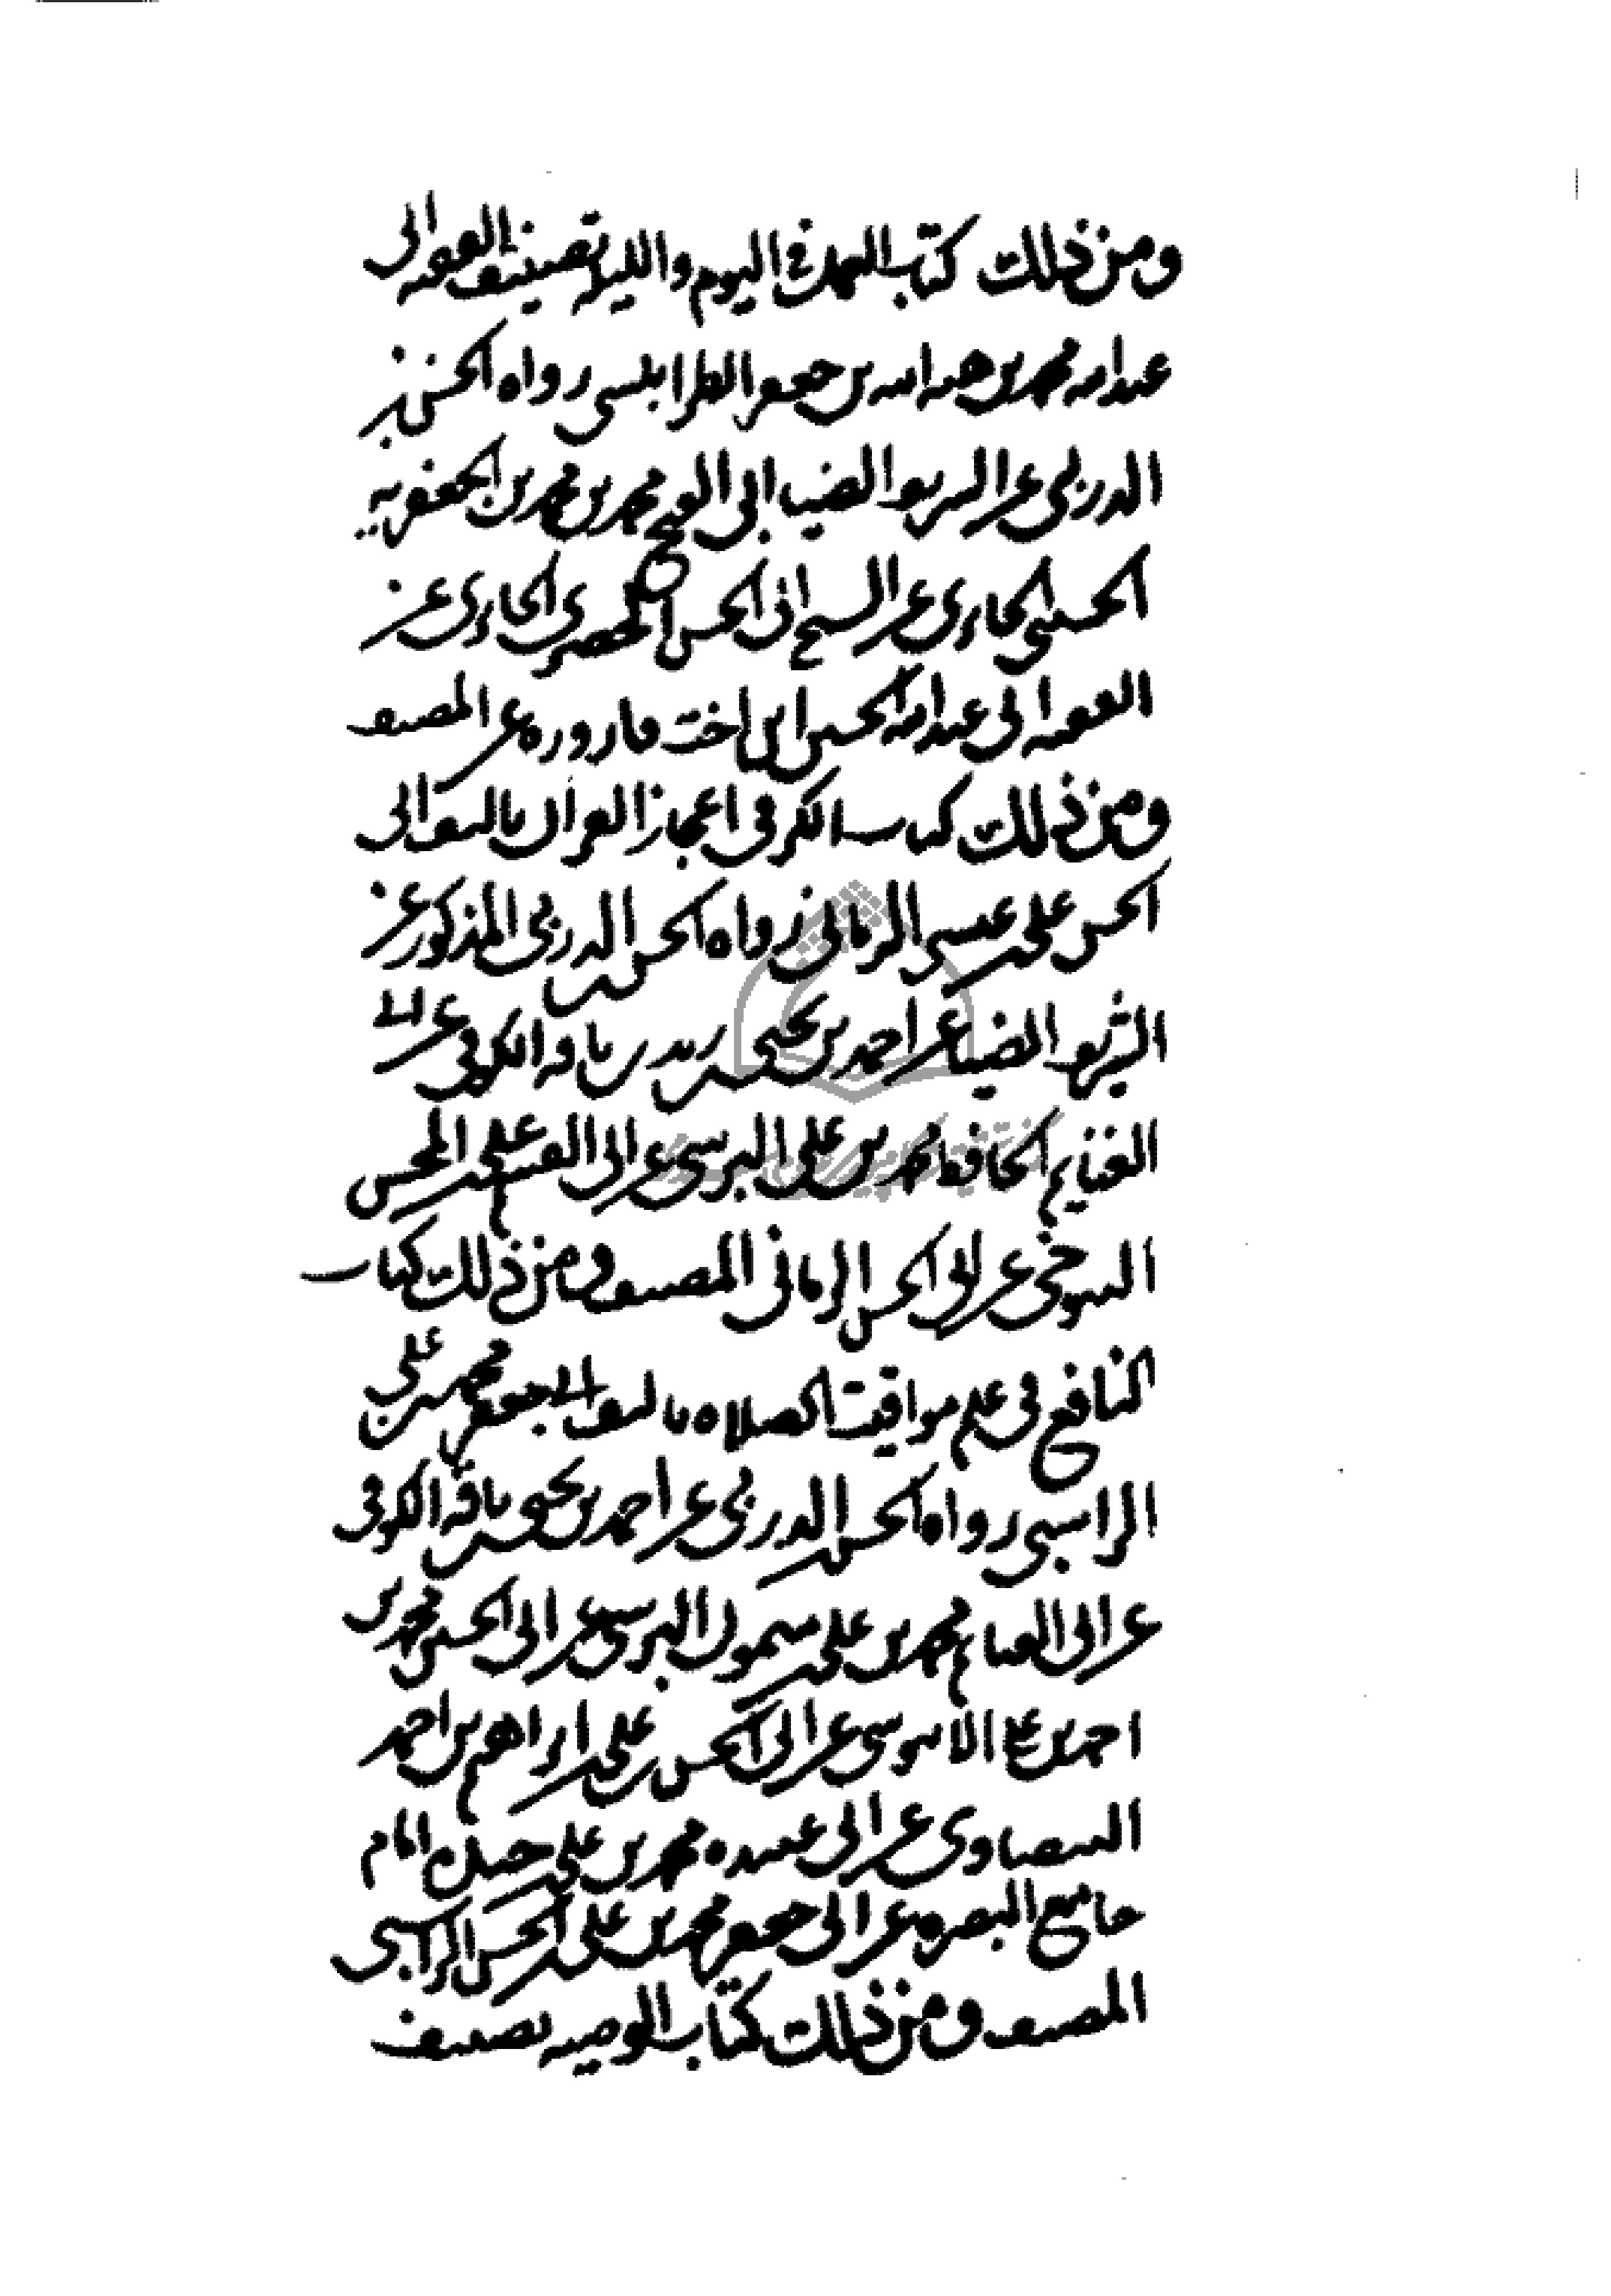 ومن ذلك كتاب العمل في اليوم والليلة تصنيف الفقيه ابي
عبد الله محمد بن هبة الله بن جعفر الطرابلسي رواه الحسن بن
الدربي عن الشريف الضيا ابي الفتح محمد بن محمد بن الجعفرية
الحسيني الحايري عن الشيخ ابي الحسن الحايري عن
الفقيه ابي عبد الله الحسين ابن اخت قاروره عن المصنف
ومن ذلك كتاب النكت في اعجاز القران تاليف ابي
الحسن علي بن عيسى الرماني رواه الحسن بن الدربي المذكور عن
الشريف الضيا عن احمد بن يحيى بن زيد بن ناقه الكوفي عن ابي
الغنايم الحافظ محمد بن علي النرسي عن ابي القسم علي بن المحسن
التنوخي عن ابي الحسن الرماني المصنف ومن ذلك كتاب
النافع في علم مواقيت الصلاه تاليف ابي جعفر محمد بن علي
الراسبي رواه الحسن بن الدربي عن احمد بن يحيى بن ناقه الكوفي
عن ابي الغنايم محمد بن علي بن ميمون النرسي عن ابي الحسن محمد بن
احمد بن علي عن ابي الحسن علي بن ابراهيم بن احمد
البيضاوي عن ابي عبيده محمد بن علي بن امام
جامع البصره عن ابي جعفر محمد بن علي بن الحسن الراسبي
المصنف ومن ذلك كتاب الوصيه تصنيف